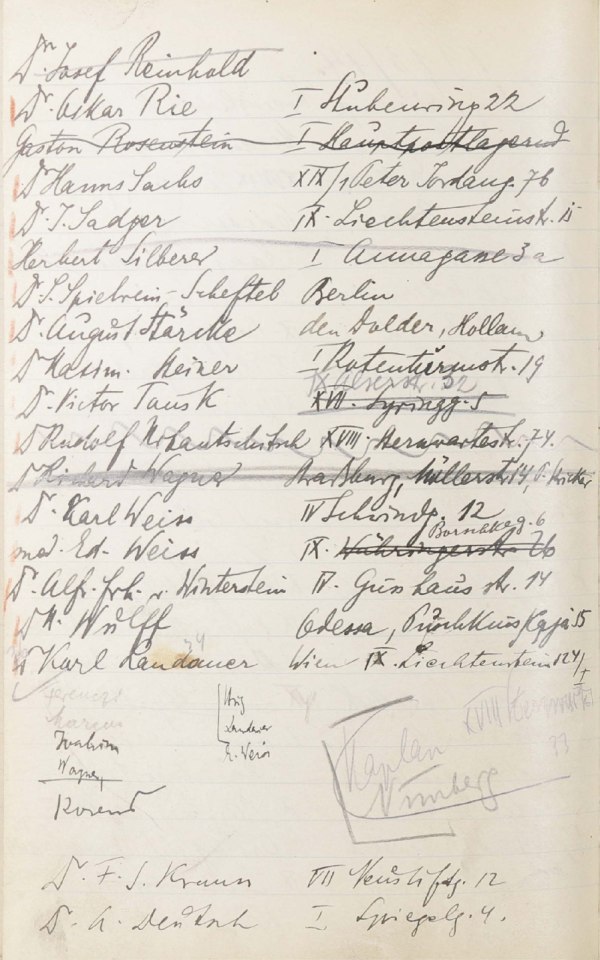 Dr. Josef Reinhold
Dr. Oskar Rie I Stubenring 22
Gaston Rosenstein I Hauptpostlagernd
Dr Hanns Sachs XIX/1 Peter Jordang. 76
Dr. J. Sadger IX. Liechtensteinstr. 15
Herbert Silberer I Annagasse 3a
Dr. S. Spielrein-Scheftel Berlin
Dr. August Stärcke den Dolder, Holland
Dr Maxim. Steiner I Rotenturmstr. 19
Dr. Victor Tausk IX Alserstr. 32
XVII. Syringg. 5
Dr Rudolf Urbantschitsch XVIII. Sternwartestr. 74.
Dr Richard Wagner Straßburg, Müllerstr 14,
Dr. Karl Weiss IV Schwindg. 12
med. Ed. Weiss IX. Währingerstr. 26
Borschkeg. 6
Dr. Alfr. Frh. v. Winterstein IV. Gusshausstr. 14
Dr M. Wulff Odessa, Puschkinskaja 55
Dr Karl Landauer Wien IX. Liechtenstein 124/
Ferenczi
Hug
Landauer
E. Weiss
Wagner
Kaplan
Nürnberg
XVIII
Dr. F. S. Krauss VII Neustiftg. 12
Dr. A. Deutsch I Spiegelg. 4.